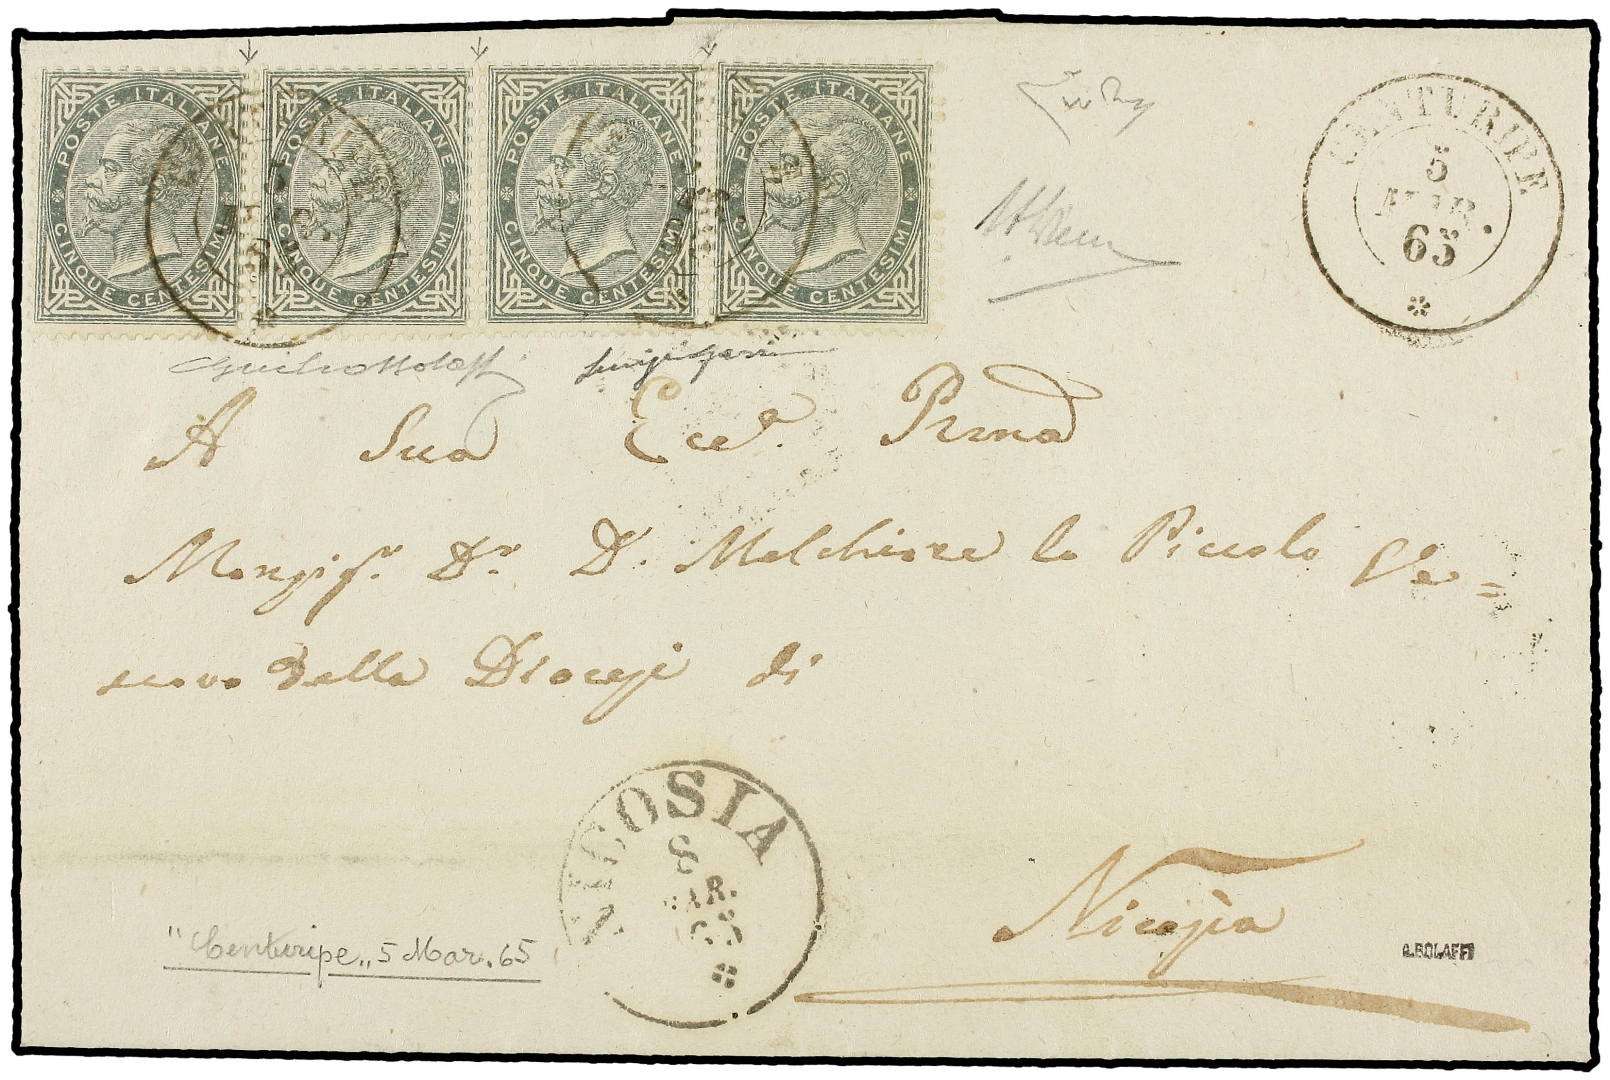 POSTE ITALIANE CINQUE CENTESIMI
POSTE ITALIANE CINQUE CENTESIMI
POSTE ITALIANE CINQUE CENTESIMI
POSTE ITALIANE CINQUE CENTESIMI
CENTURIPE
5
MAR.
65
A Sua Ecc.a
Monsigr. Dn. D. Melchiore lo Piccolo Ve=
scovo della Diocesi di
NICOSIA
8
MAR.
65
Nicosia
"Centuripe„ 5 Mar. 65
A. BOLAFFI